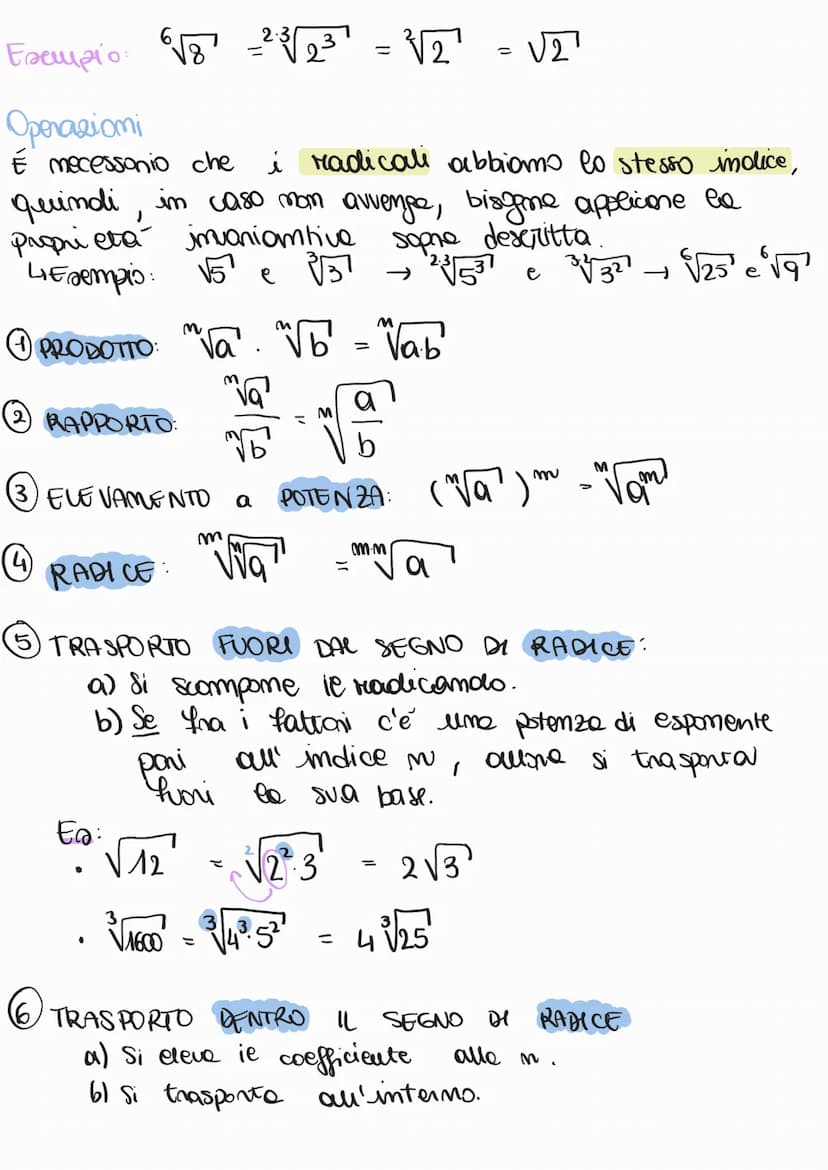 Esempio: ⁶√8 = ²·³√2³ = ²√2 = √2
Operazioni
É necessario che i radicali abbiamo lo stesso indice,
quindi, in caso non avvenga, bisogna applicare la
proprietà invariantiva sopra descritta.
↳Esempio: √5 e ³√3 → ²·³√5³ e ³·²√3² → ⁶√25 e ⁶√9
① PRODOTTO: ⁿ√a · ⁿ√b = ⁿ√a·b
② RAPPORTO: ⁿ√a / ⁿ√b = ⁿ√(a/b)
③ ELEVAMENTO a POTENZA: (ⁿ√a)ᵐ = ⁿ√aᵐ
④ RADICE: ᵐ√ⁿ√a = ᵐ·ⁿ√a
⑤ TRASPORTO FUORI DAL SEGNO DI RADICE:
a) Si scompone il radicando.
b) Se fra i fattori c'é una potenza di esponente
pari all'indice n, allora si trasporta
fuori la sua base.
Es:
· √12 = ²√2²·3 = 2√3
· ³√1600 = ³√4³·5² = 4 ³√25
⑥ TRASPORTO DENTRO IL SEGNO DI RADICE
a) Si eleva il coefficiente alla n.
b) Si trasporta all'interno.